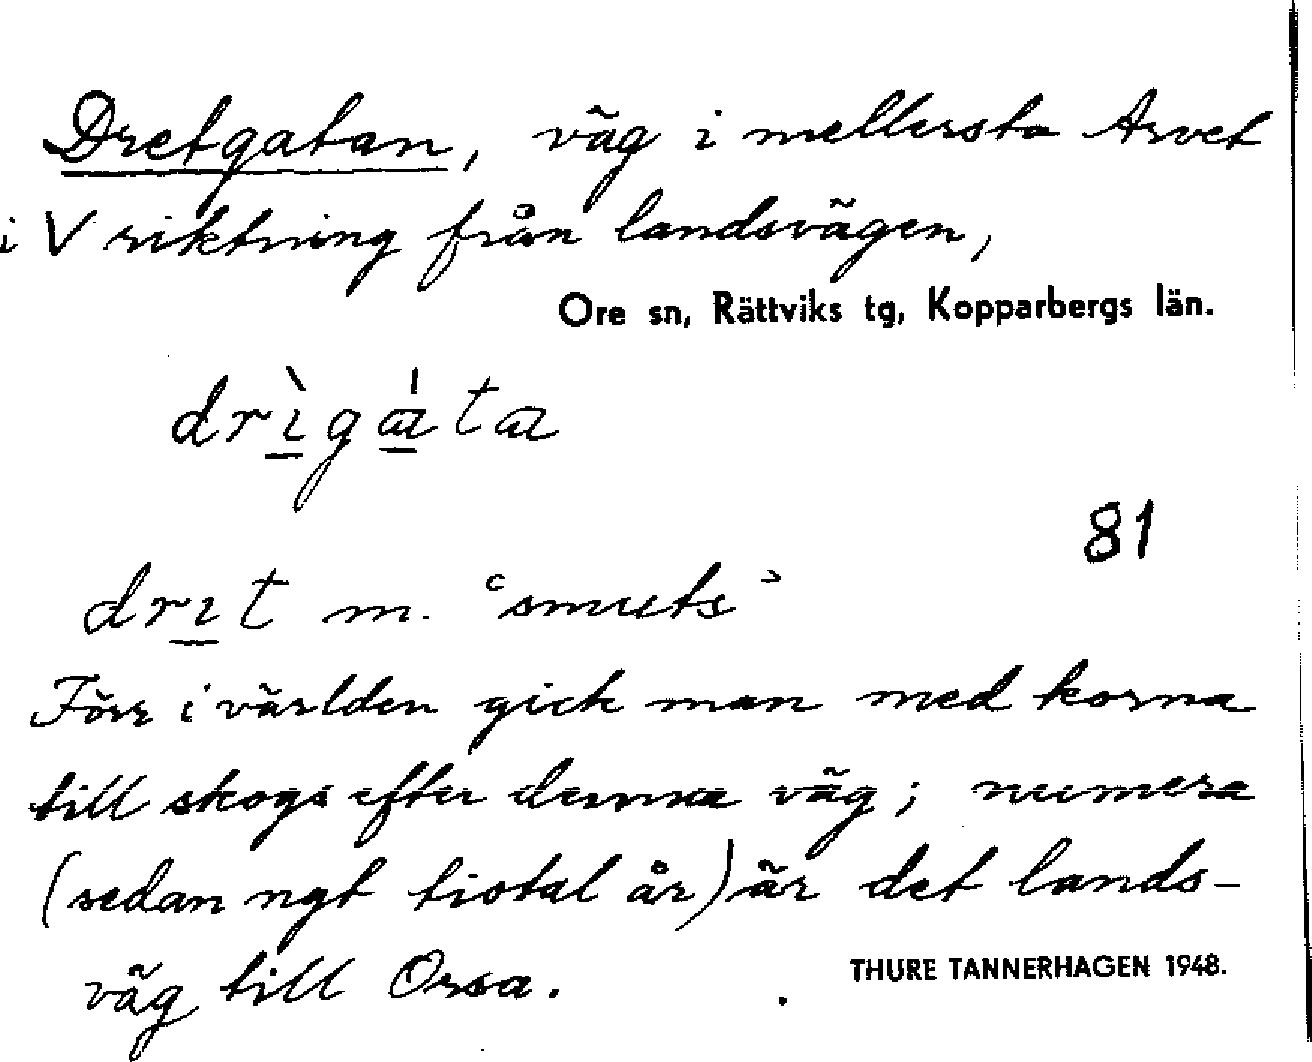 Dretgatan, väg i mellersta Arvet
i V riktning från landsvägen,
Ore sn, Rättviks tg, Kopparbergs län.
drı̀gáta
81
drıt m. ʻsmutsʼ
Förr i världen gick man med korna
till skogs efter denna väg; numera
(sedan ngt tiotal år) är det lands-
väg till Orsa.
THURE TANNERHAGEN 1948.